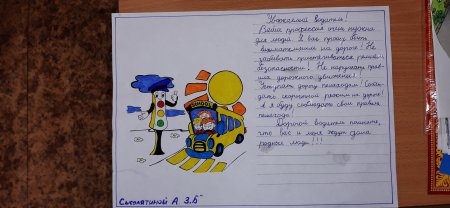 Уважаемый водитель!
Ваша профессия очень нужна
для людей. Я вас прошу быть
внимательным на дороге! Не
забывать пристёгиваться ремнём
безопасности! Не нарушать прави-
ла дорожного движения!
Уступать дорогу пешеходам! Соблю-
дать скоростной режим на дороге!
А я буду соблюдать свои правила
пешехода!
Дорогой водитель помните,
что вас и меня ждут дома
родные люди!!!
SCHOOL
А 3.Б